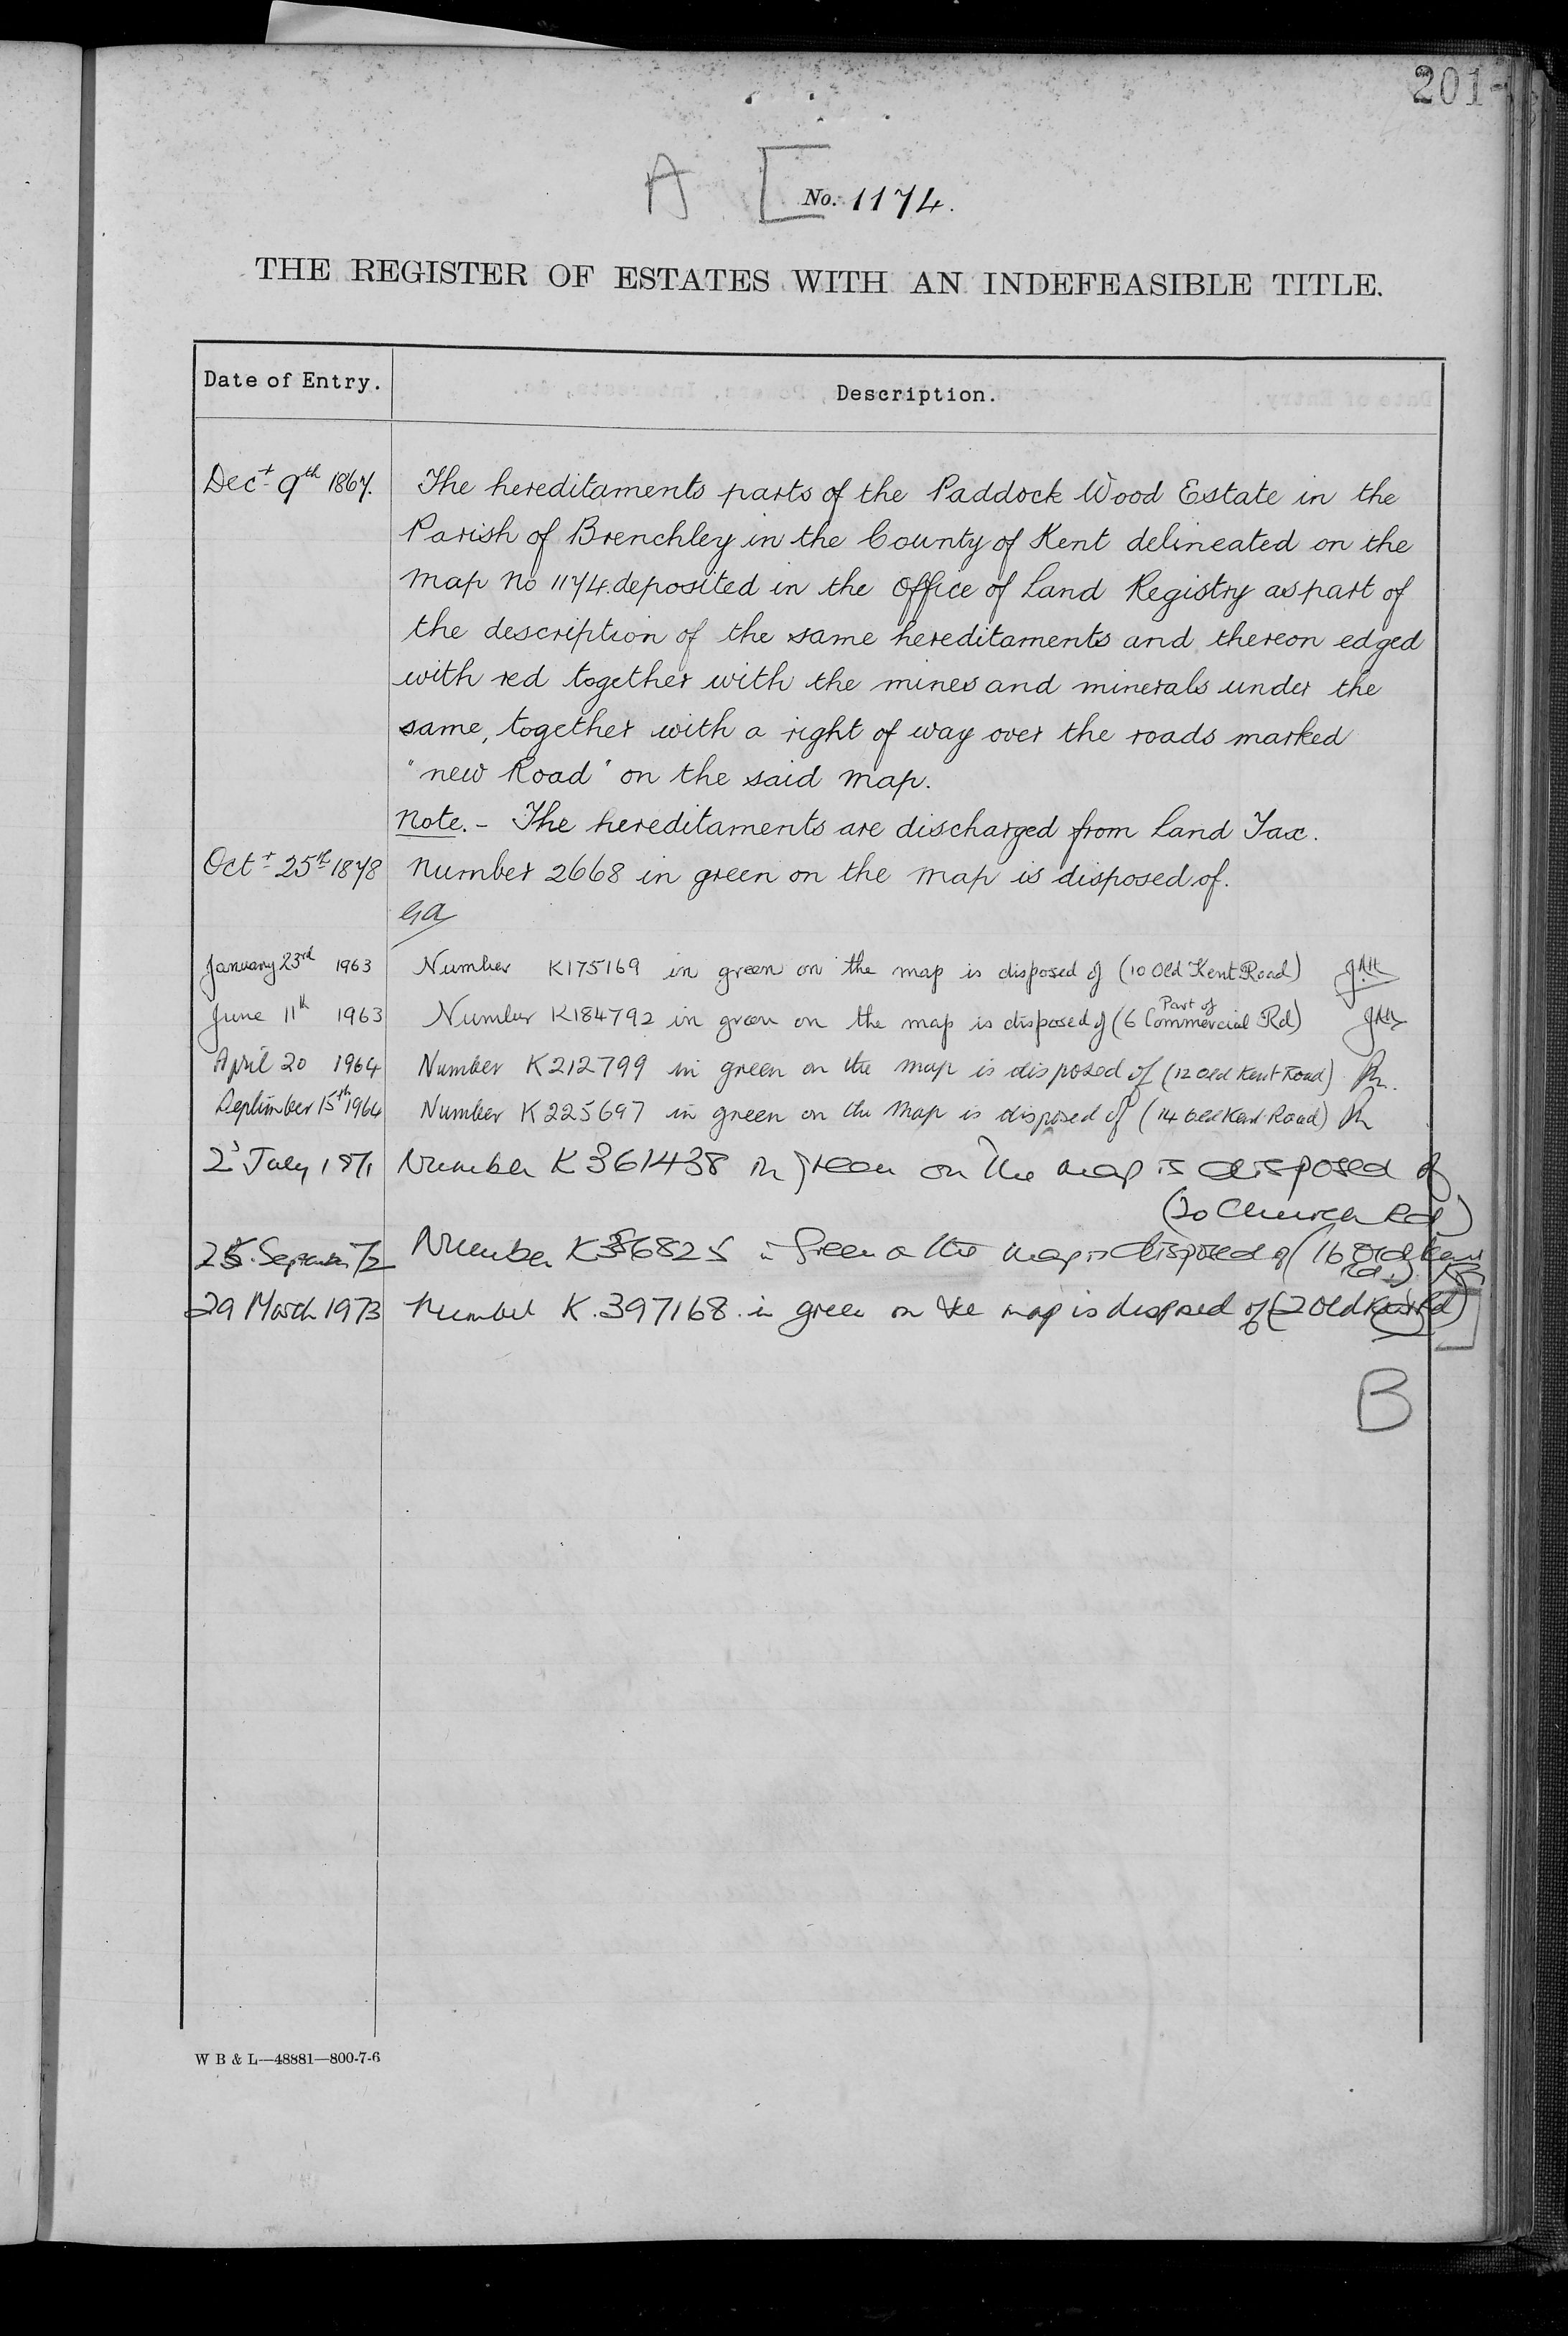 201
A [ No. 1174.
THE REGISTER OF ESTATES WITH AN INDEFEASIBLE TITLE.
Date of Entry. Description.
Decr 9th 1867. The hereditaments parts of the Paddock Wood Estate in the
Parish of Brenchley in the County of Kent delineated on the
map no 1174. deposited in the Office of Land Registry as part of
the description of the same hereditaments and thereon edged
with red together with the mines and minerals under the
same, together with a right of way over the roads marked
"new Road" on the said map.
Note. - The hereditaments are discharged from Land Tax.
Octr 25th 1878 Number 2668 in green on the map is disposed of.
January 23rd 1963 Number K175169 in green on the map is disposed of (10 Old Kent Road)
Part of
June 11th 1963 Number K184792 in green on the map is disposed of (6 Commercial Rd)
April 20 1964 Number K212799 in green on the map is disposed of (12 Old Kent Road)
September 15th 1964 Number K225697 in green on the map is disposed of (14 Old Kent Road)
2 July 1971 Number K361438 in green on the map is disposed of
(20 Church Rd)
September 72 Number in green on the map is disposed of (16 Old Kent
Rd.)
29 March 1973 Number K.397168. in green on the map is disposed of (2 Old Kent Rd) ]
B
W B & L—48881—800-7-6